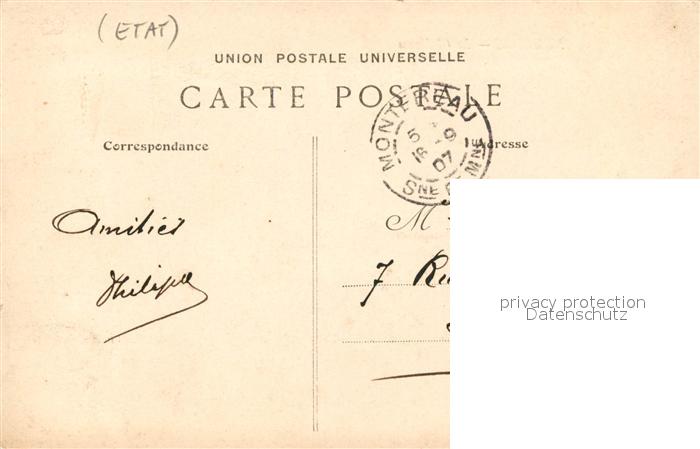 (ETAT)
UNION POSTALE UNIVERSELLE
CARTE POSTALE
MONTEREAU
5 - 9
16 07
SNE ET MNE
Correspondance
Adresse
M
Amitiés
7 Ru
Philippe
privacy protection
Datenschutz